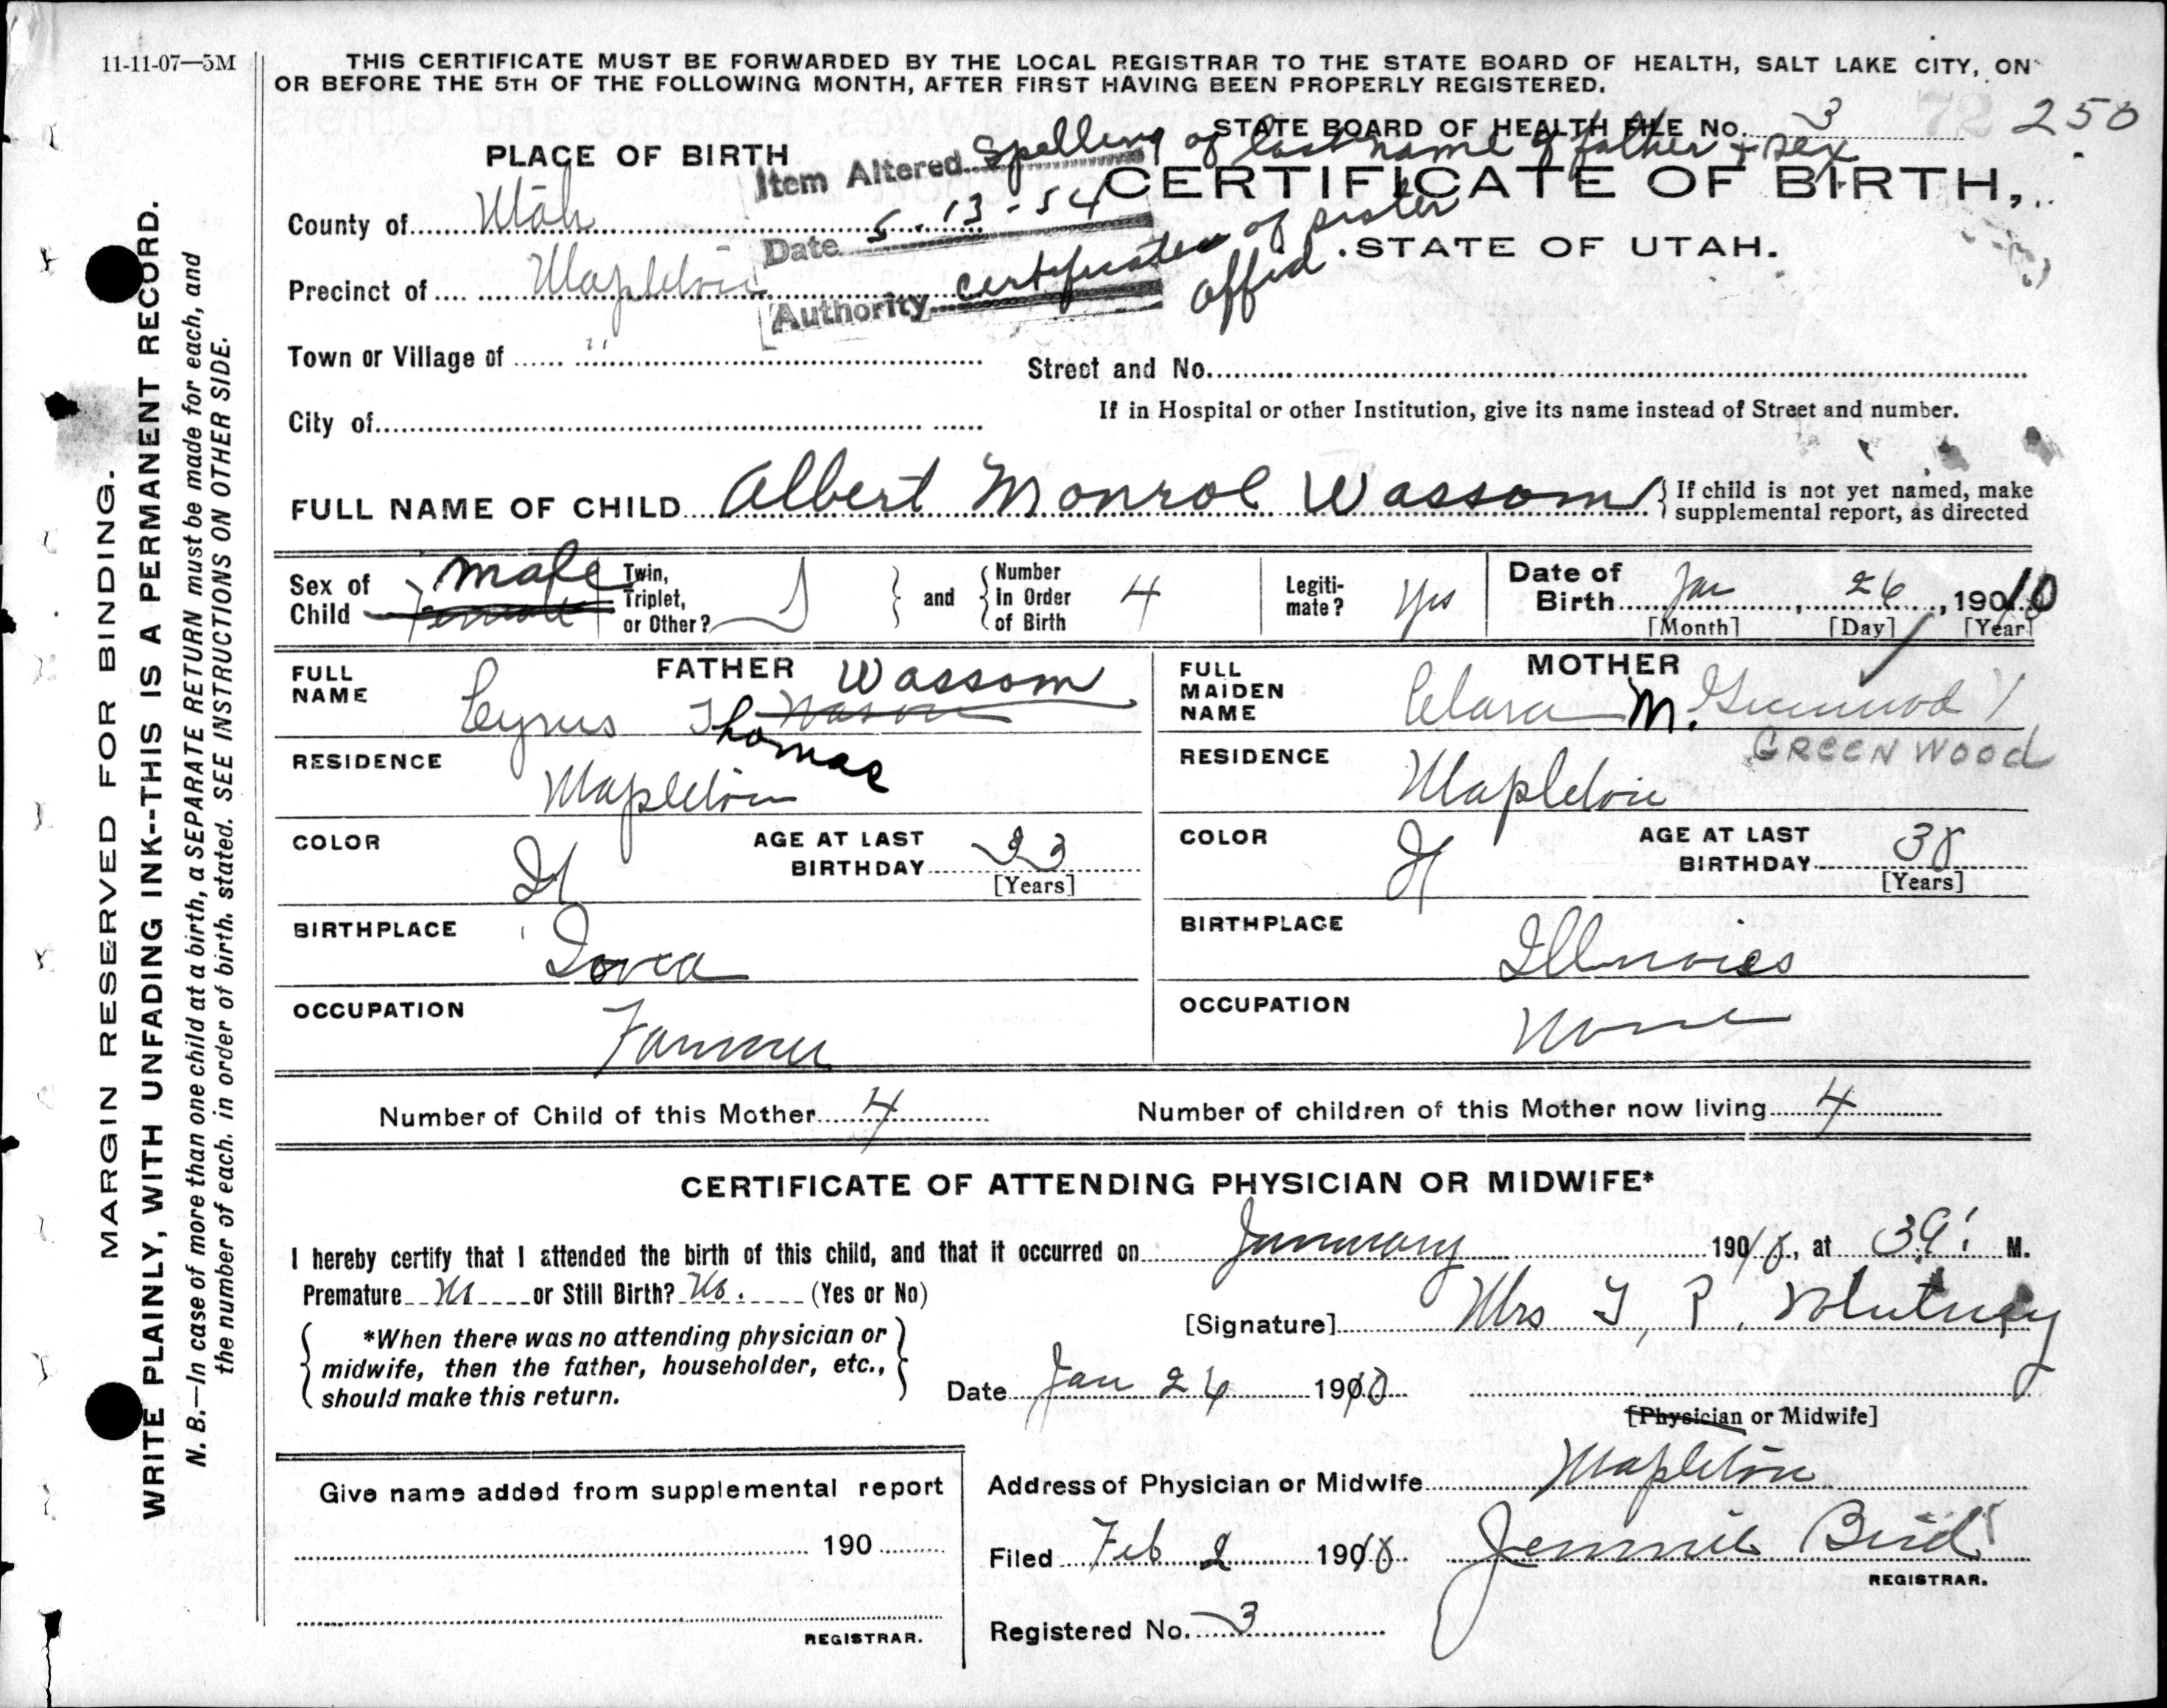 11-11-07—5M
THIS CERTIFICATE MUST BE FORWARDED BY THE LOCAL REGISTRAR TO THE STATE BOARD OF HEALTH, SALT LAKE CITY, ON
OR BEFORE THE 5TH OF THE FOLLOWING MONTH, AFTER FIRST HAVING BEEN PROPERLY REGISTERED.
STATE BOARD OF HEALTH FILE No. 3 250
PLACE OF BIRTH
Item Altered Spelling of last name of father + sex
CERTIFICATE OF BIRTH,
County of Utah
Date 5-13-54
STATE OF UTAH.
Precinct of Mapleton
Authority certificate of sister affid
Town or Village of "
Street and No.
City of
If in Hospital or other Institution, give its name instead of Street and number.
FULL NAME OF CHILD Albert Monroe Wassom
If child is not yet named, make
supplemental report, as directed
Sex of Child male Female
Twin, Triplet, or Other?
and Number In Order of Birth 4
Legiti-mate? Yes
Date of Birth Jan 26, 1910
[Month] [Day] [Year]
FATHER
FULL NAME Cyrus Thomas Wassom
RESIDENCE Mapleton
COLOR
AGE AT LAST BIRTHDAY 33
[Years]
BIRTHPLACE Iowa
OCCUPATION Farmer
MOTHER
FULL MAIDEN NAME Clara M. Greenwood
GREENWOOD
RESIDENCE Mapleton
COLOR
AGE AT LAST BIRTHDAY 38
[Years]
BIRTHPLACE Illinoies
OCCUPATION None
Number of Child of this Mother 4
Number of children of this Mother now living 4
CERTIFICATE OF ATTENDING PHYSICIAN OR MIDWIFE*
I hereby certify that I attended the birth of this child, and that it occurred on January 1910, at M.
Premature No or Still Birth? No. (Yes or No)
[Signature] Mrs T. R. Whitney
*When there was no attending physician or
midwife, then the father, householder, etc.,
should make this return.
Date Jan 26 1910
[Physician or Midwife]
Give name added from supplemental report
190
REGISTRAR.
Address of Physician or Midwife Mapleton
Filed Feb 2 1910 Jennie Bird
REGISTRAR.
Registered No. 3
MARGIN RESERVED FOR BINDING.
WRITE PLAINLY, WITH UNFADING INK--THIS IS A PERMANENT RECORD.
N. B.—In case of more than one child at a birth, a SEPARATE RETURN must be made for each, and
the number of each. in order of birth. stated. SEE INSTRUCTIONS ON OTHER SIDE.